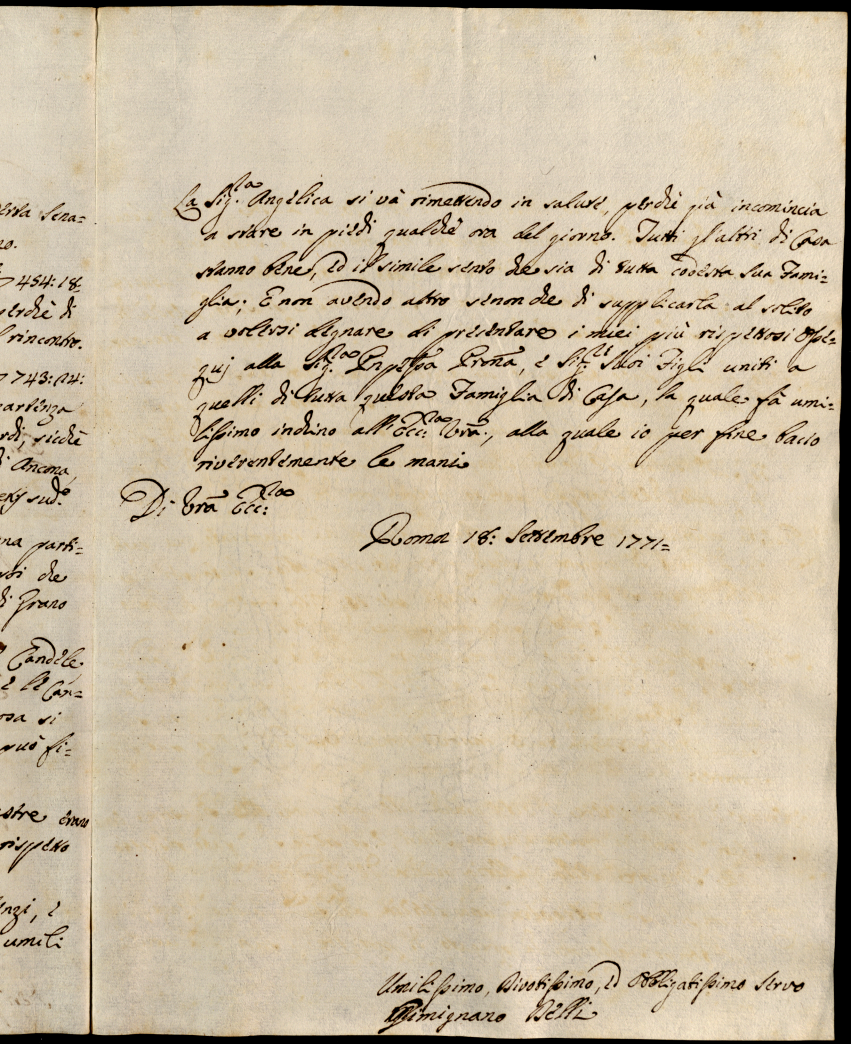 esta Sena=
no.
7454:18.
perchè di
l rincontro.
7743:24:
partenza
rdi, sicchè
di Ancona,
sud.º
una parti=
che
di Grano
Candele
è le Can=
osa si
può fi=
estre erano
rispetto
enzi, e
umili
La Sig.ra Angelica si và rimettendo in salute, perchè già incomincia
a stare in piedi qualche ora del giorno. Tutti gl'altri di Casa
stanno bene, ed il simile sento che sia di tutta codesta Sua Fami=
glia; E non avendo altro senonche di supplicarla al solito
a volersi degnare di presentare i miei più rispettosi osse=
quj alla Sig.ra Pnpessa Prona, e Sig.ri Suoi Figli uniti a
quelli di tutta questa Famiglia di Casa, la quale fà umi=
lissimo inchino all'Ecc:za Vrã., alla quale io per fine bacio
riverentemente le mani
Di Vrã Ecc:za
Roma 18: Settembre 1771=
Umilissimo, Divotissimo, ed Obbligatissimo Servo
Gimignano Belli